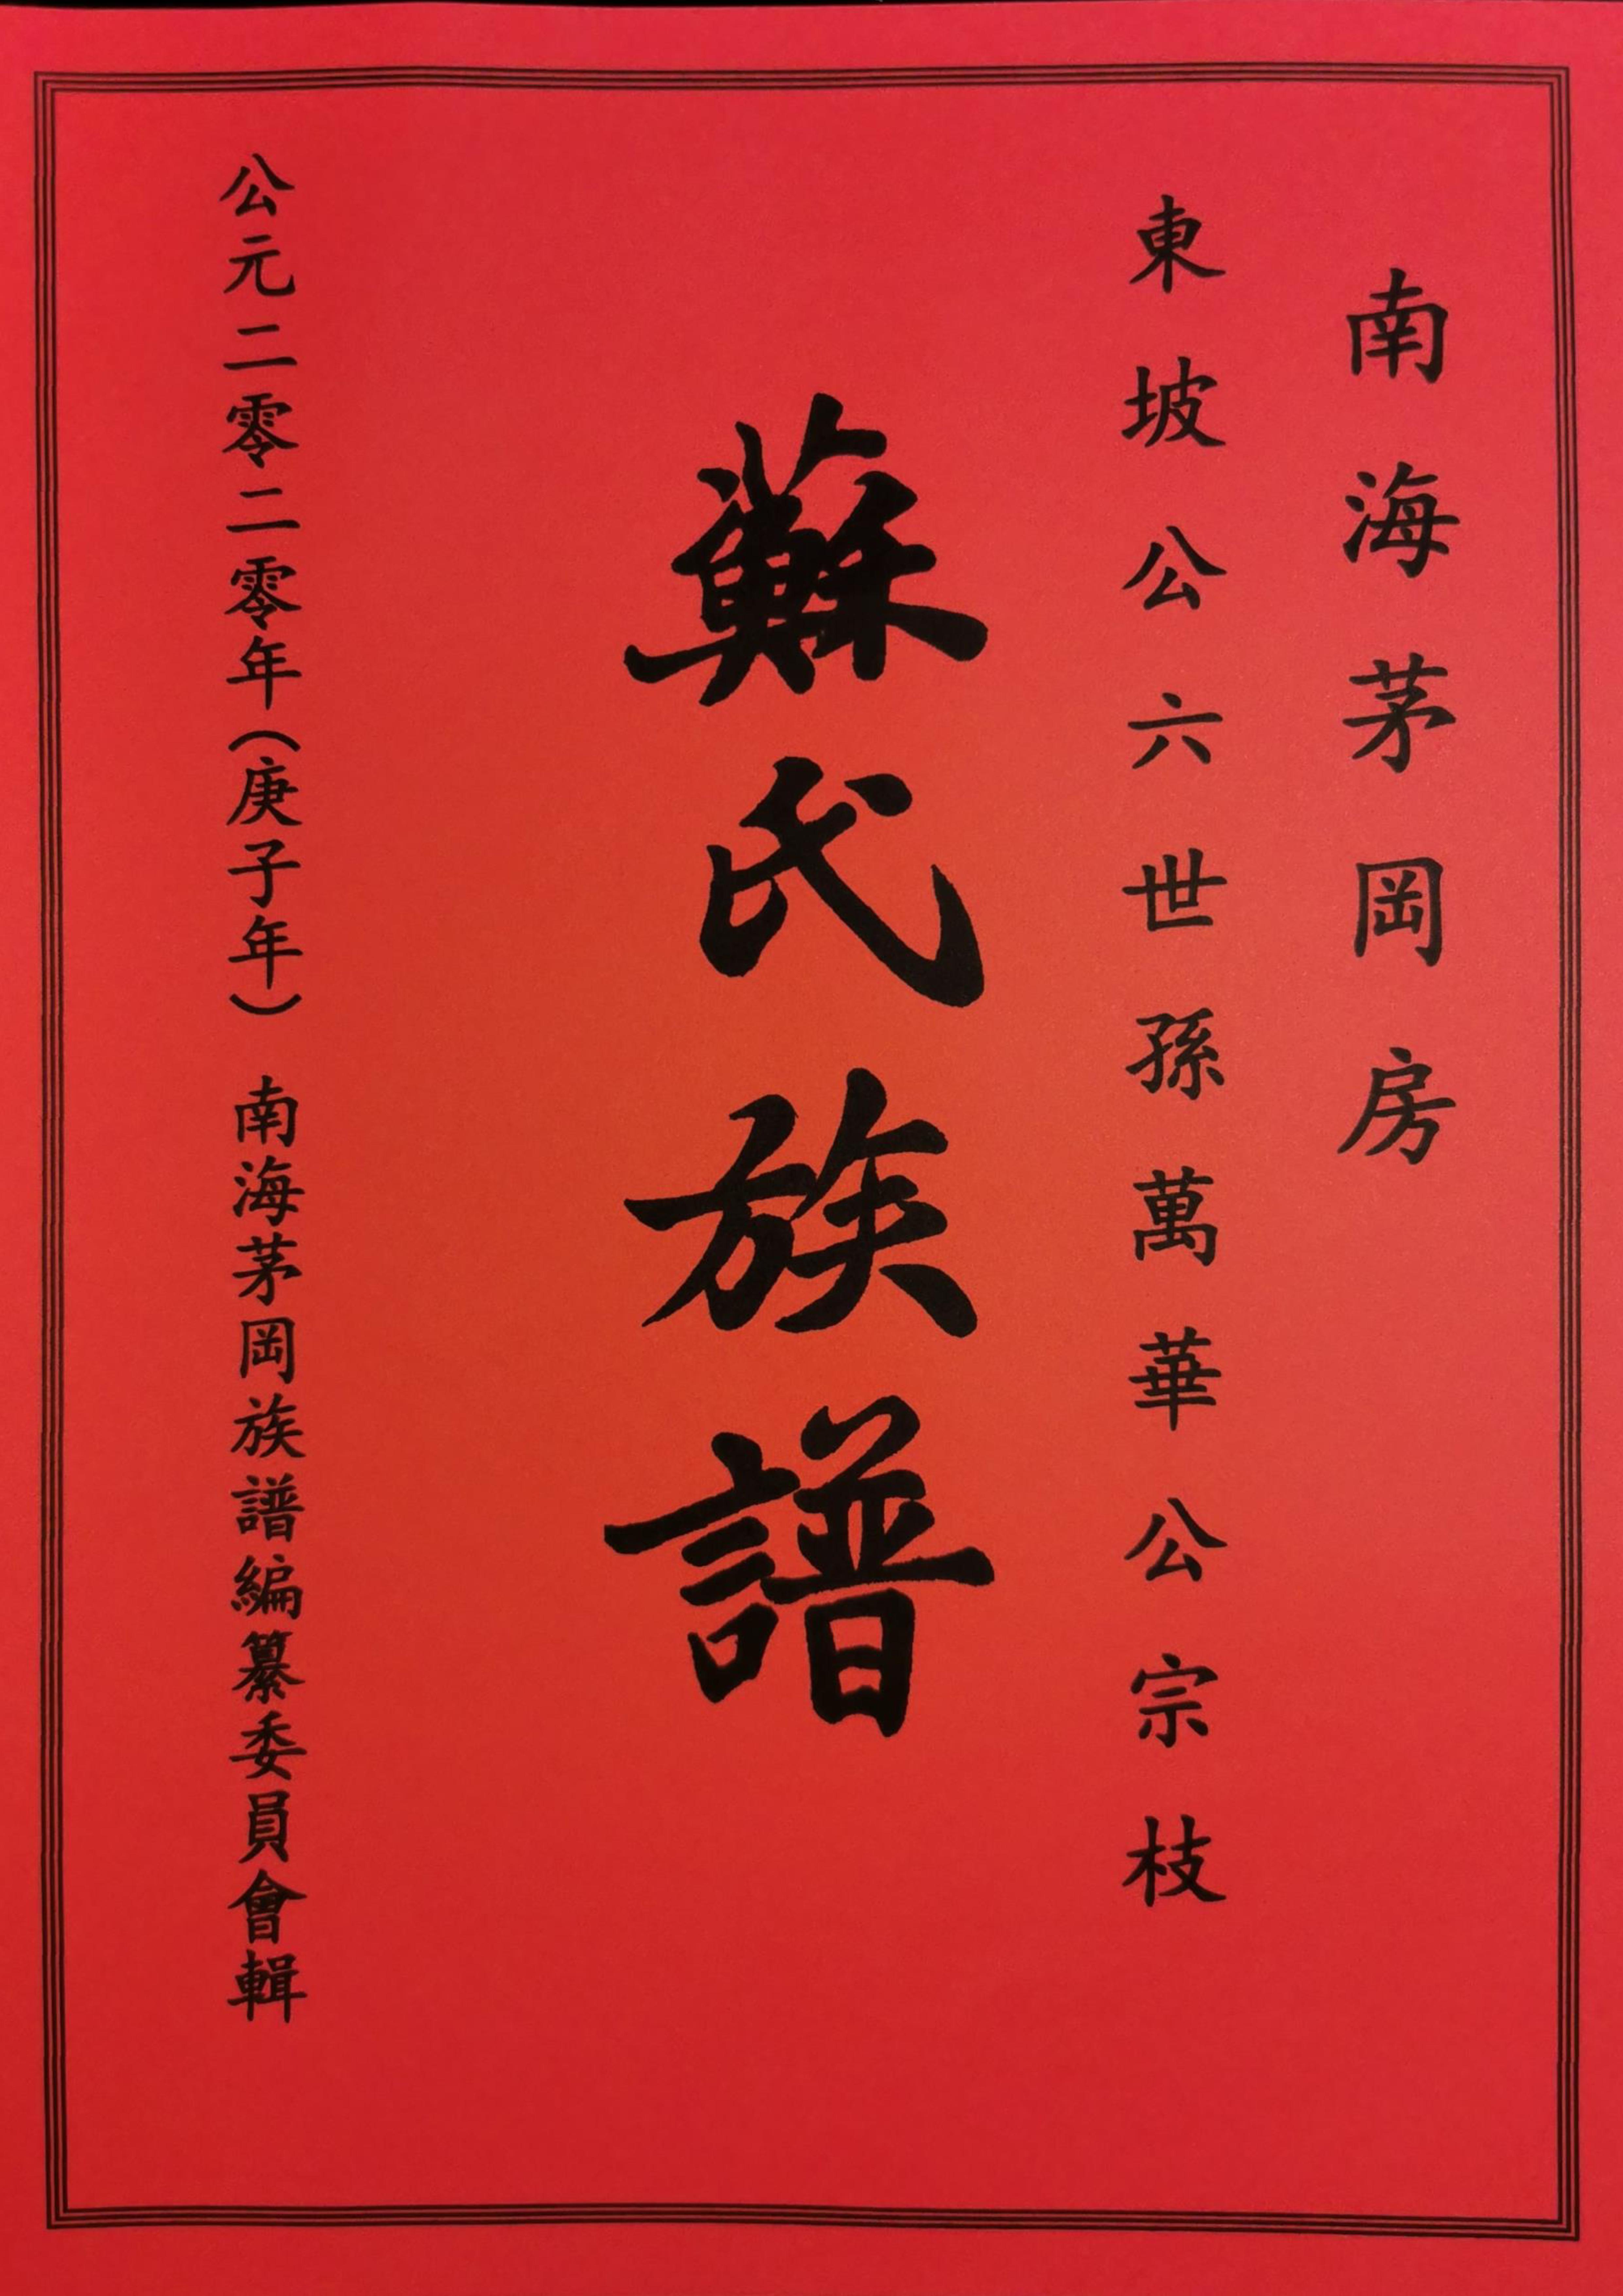 南海茅岡房
東坡公六世孫萬華公宗枝
蘇氏族譜
公元二零二零年（庚子年） 南海茅岡族譜編纂委員會輯